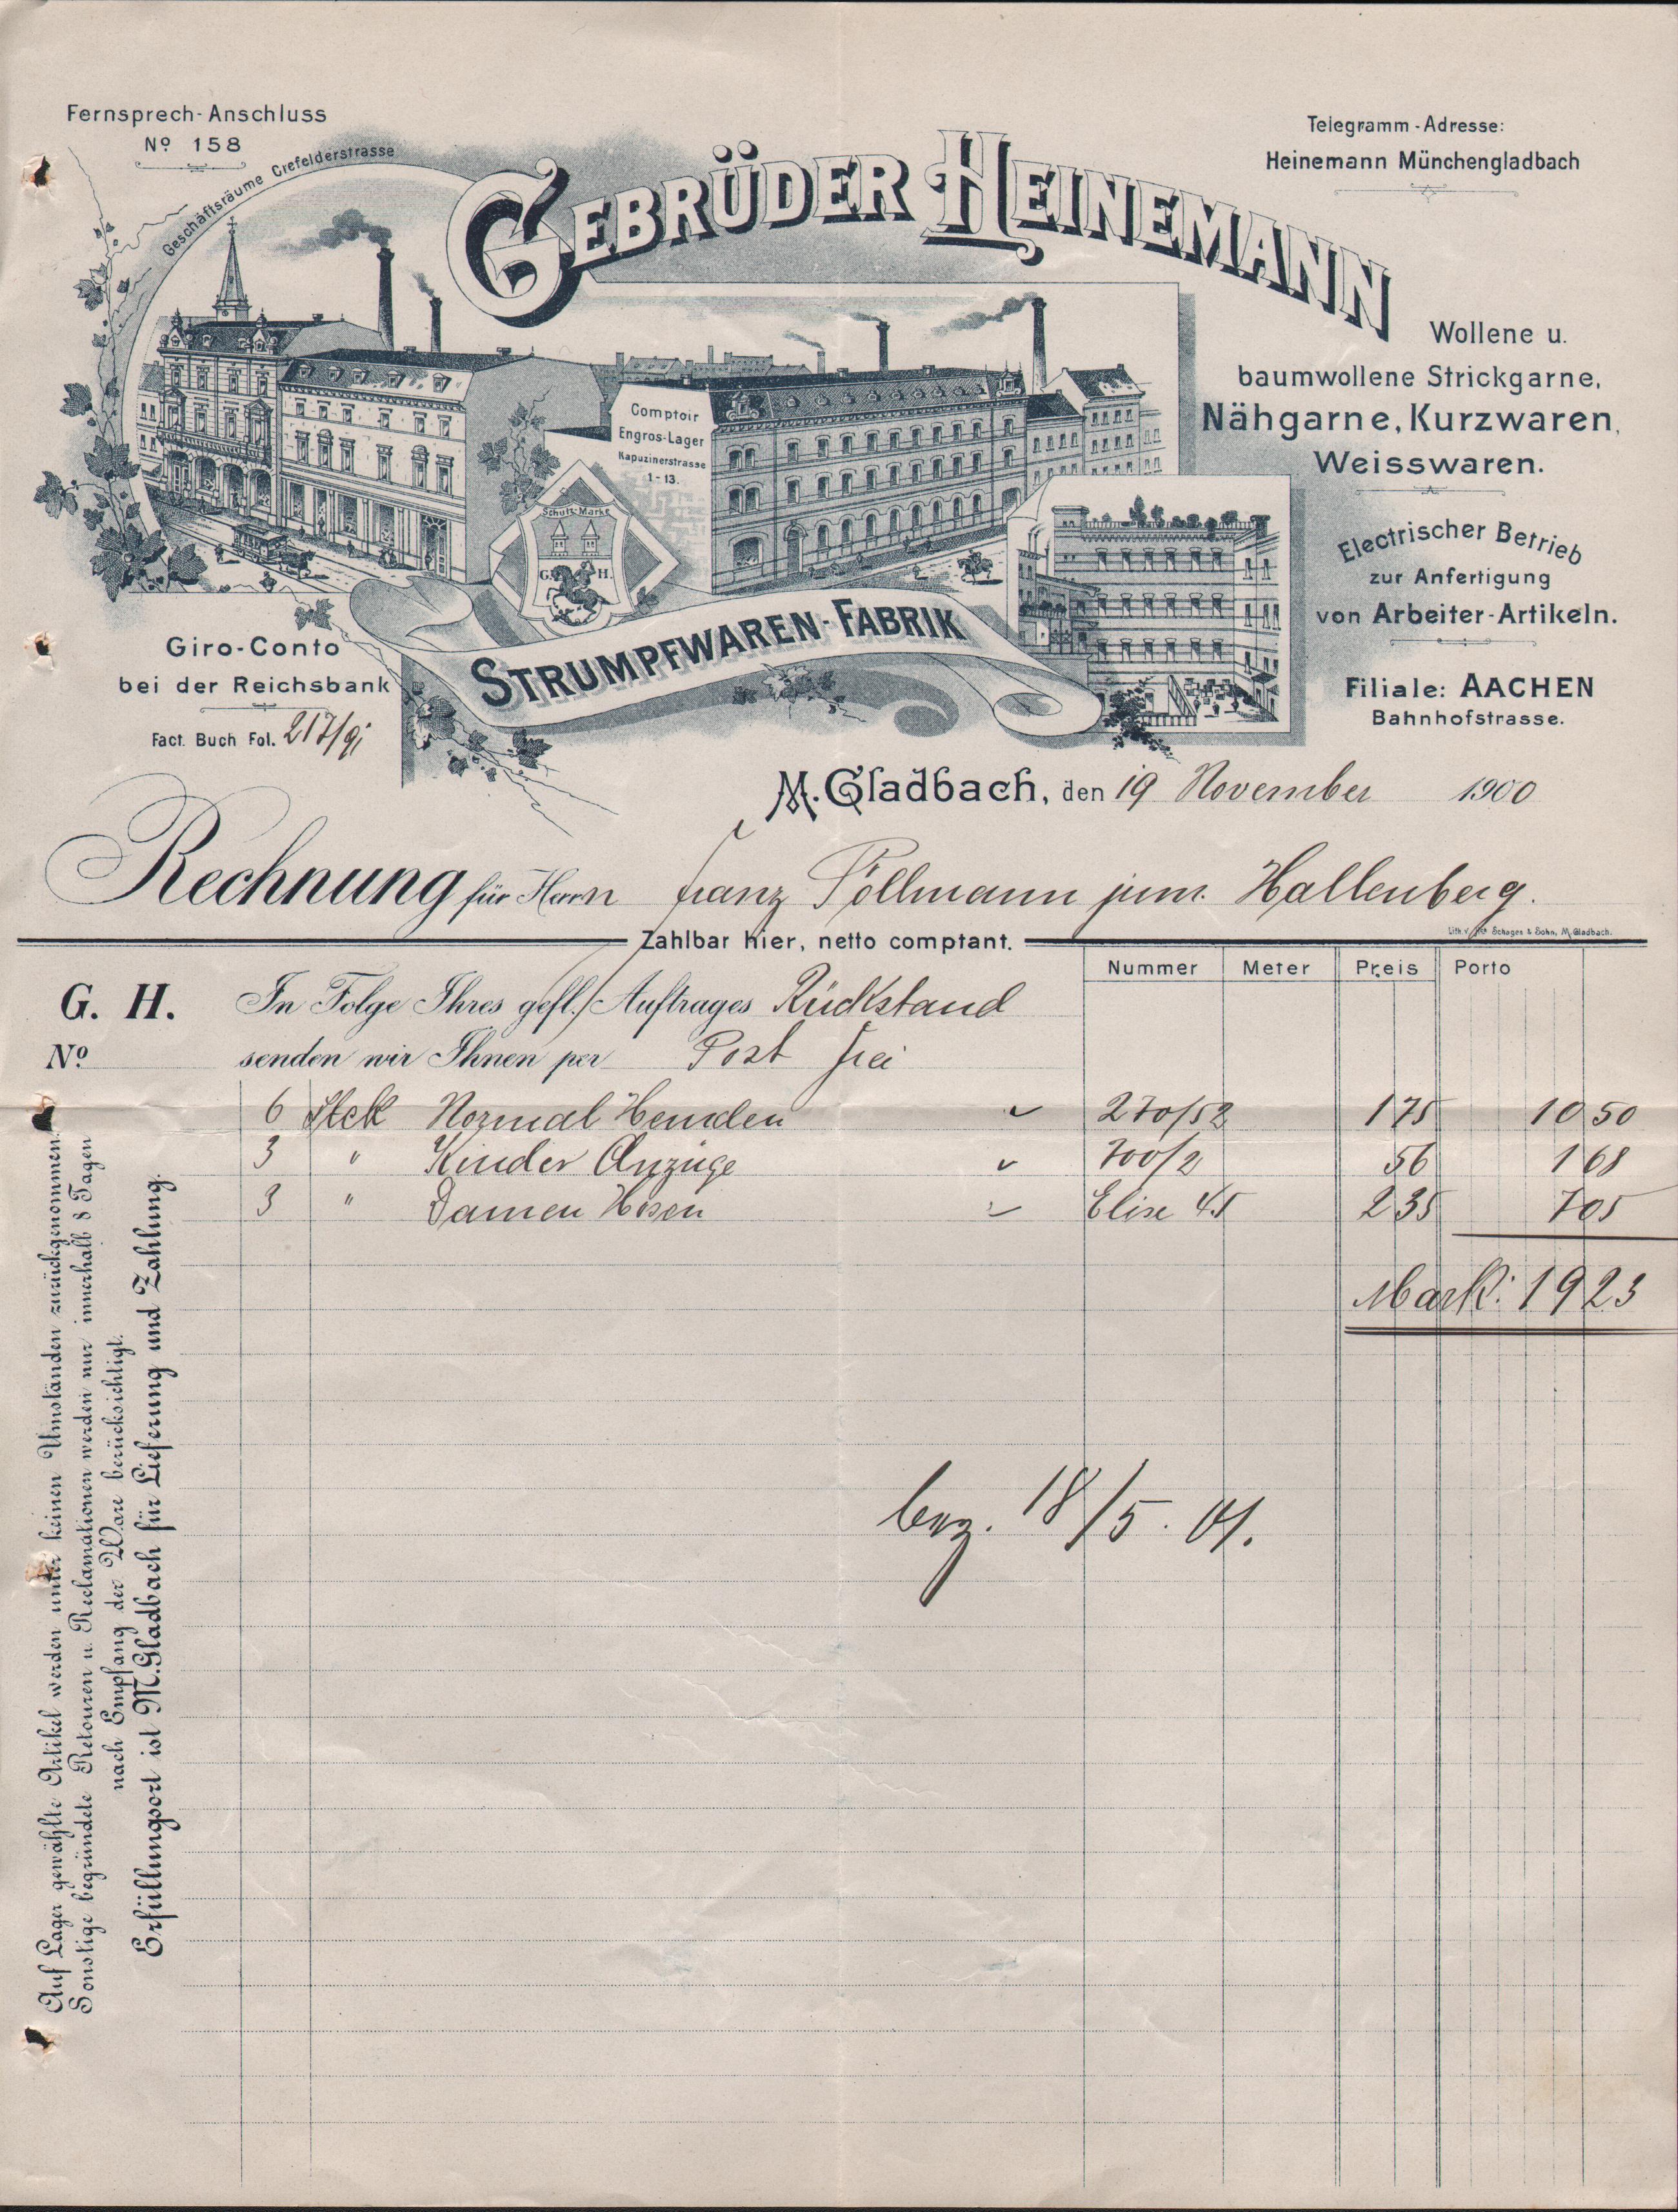 Fernsprech-Anschluss
Nº 158
Geschäftsräume Crefelderstrasse
GEBRÜDER HEINEMANN
Telegramm-Adresse:
Heinemann Münchengladbach
Wollene u.
baumwollene Strickgarne,
Nähgarne, Kurzwaren,
Weisswaren.
Comptoir
Engros-Lager
Kapuzinerstrasse
1-13.
Schutz-Marke
G. H.
Electrischer Betrieb
zur Anfertigung
von Arbeiter-Artikeln.
STRUMPFWAREN-FABRIK
Giro-Conto
bei der Reichsbank
Filiale: AACHEN
Bahnhofstrasse.
Fact. Buch Fol. 217/91
M. Gladbach, den 19 November 1900
Rechnung für Herrn Franz Pöllmann jun. Hallenberg.
Zahlbar hier, netto comptant.
Schages & Sohn, M. Gladbach.
Nummer Meter Preis Porto
G. H. In Folge Ihres gefl. Auftrages Rückstand
Nº senden wir Ihnen per Post frei
6 Stck Normal Hemden 270/52 175 10 50
3 " Kinder Anzüge 700/2 56 1 68
3 " Damen Hosen Elise 45 235 7 05
Mark: 19 23
bez. 18/5. 01.
Auf Lager gewählte Artikel werden unter keinen Umständen zurückgenommen.
Sonstige begründete Retouren u. Reclamationen werden nur innerhalb 8 Tagen
nach Empfang der Ware berücksichtigt.
Erfüllungsort ist M. Gladbach für Lieferung und Zahlung.